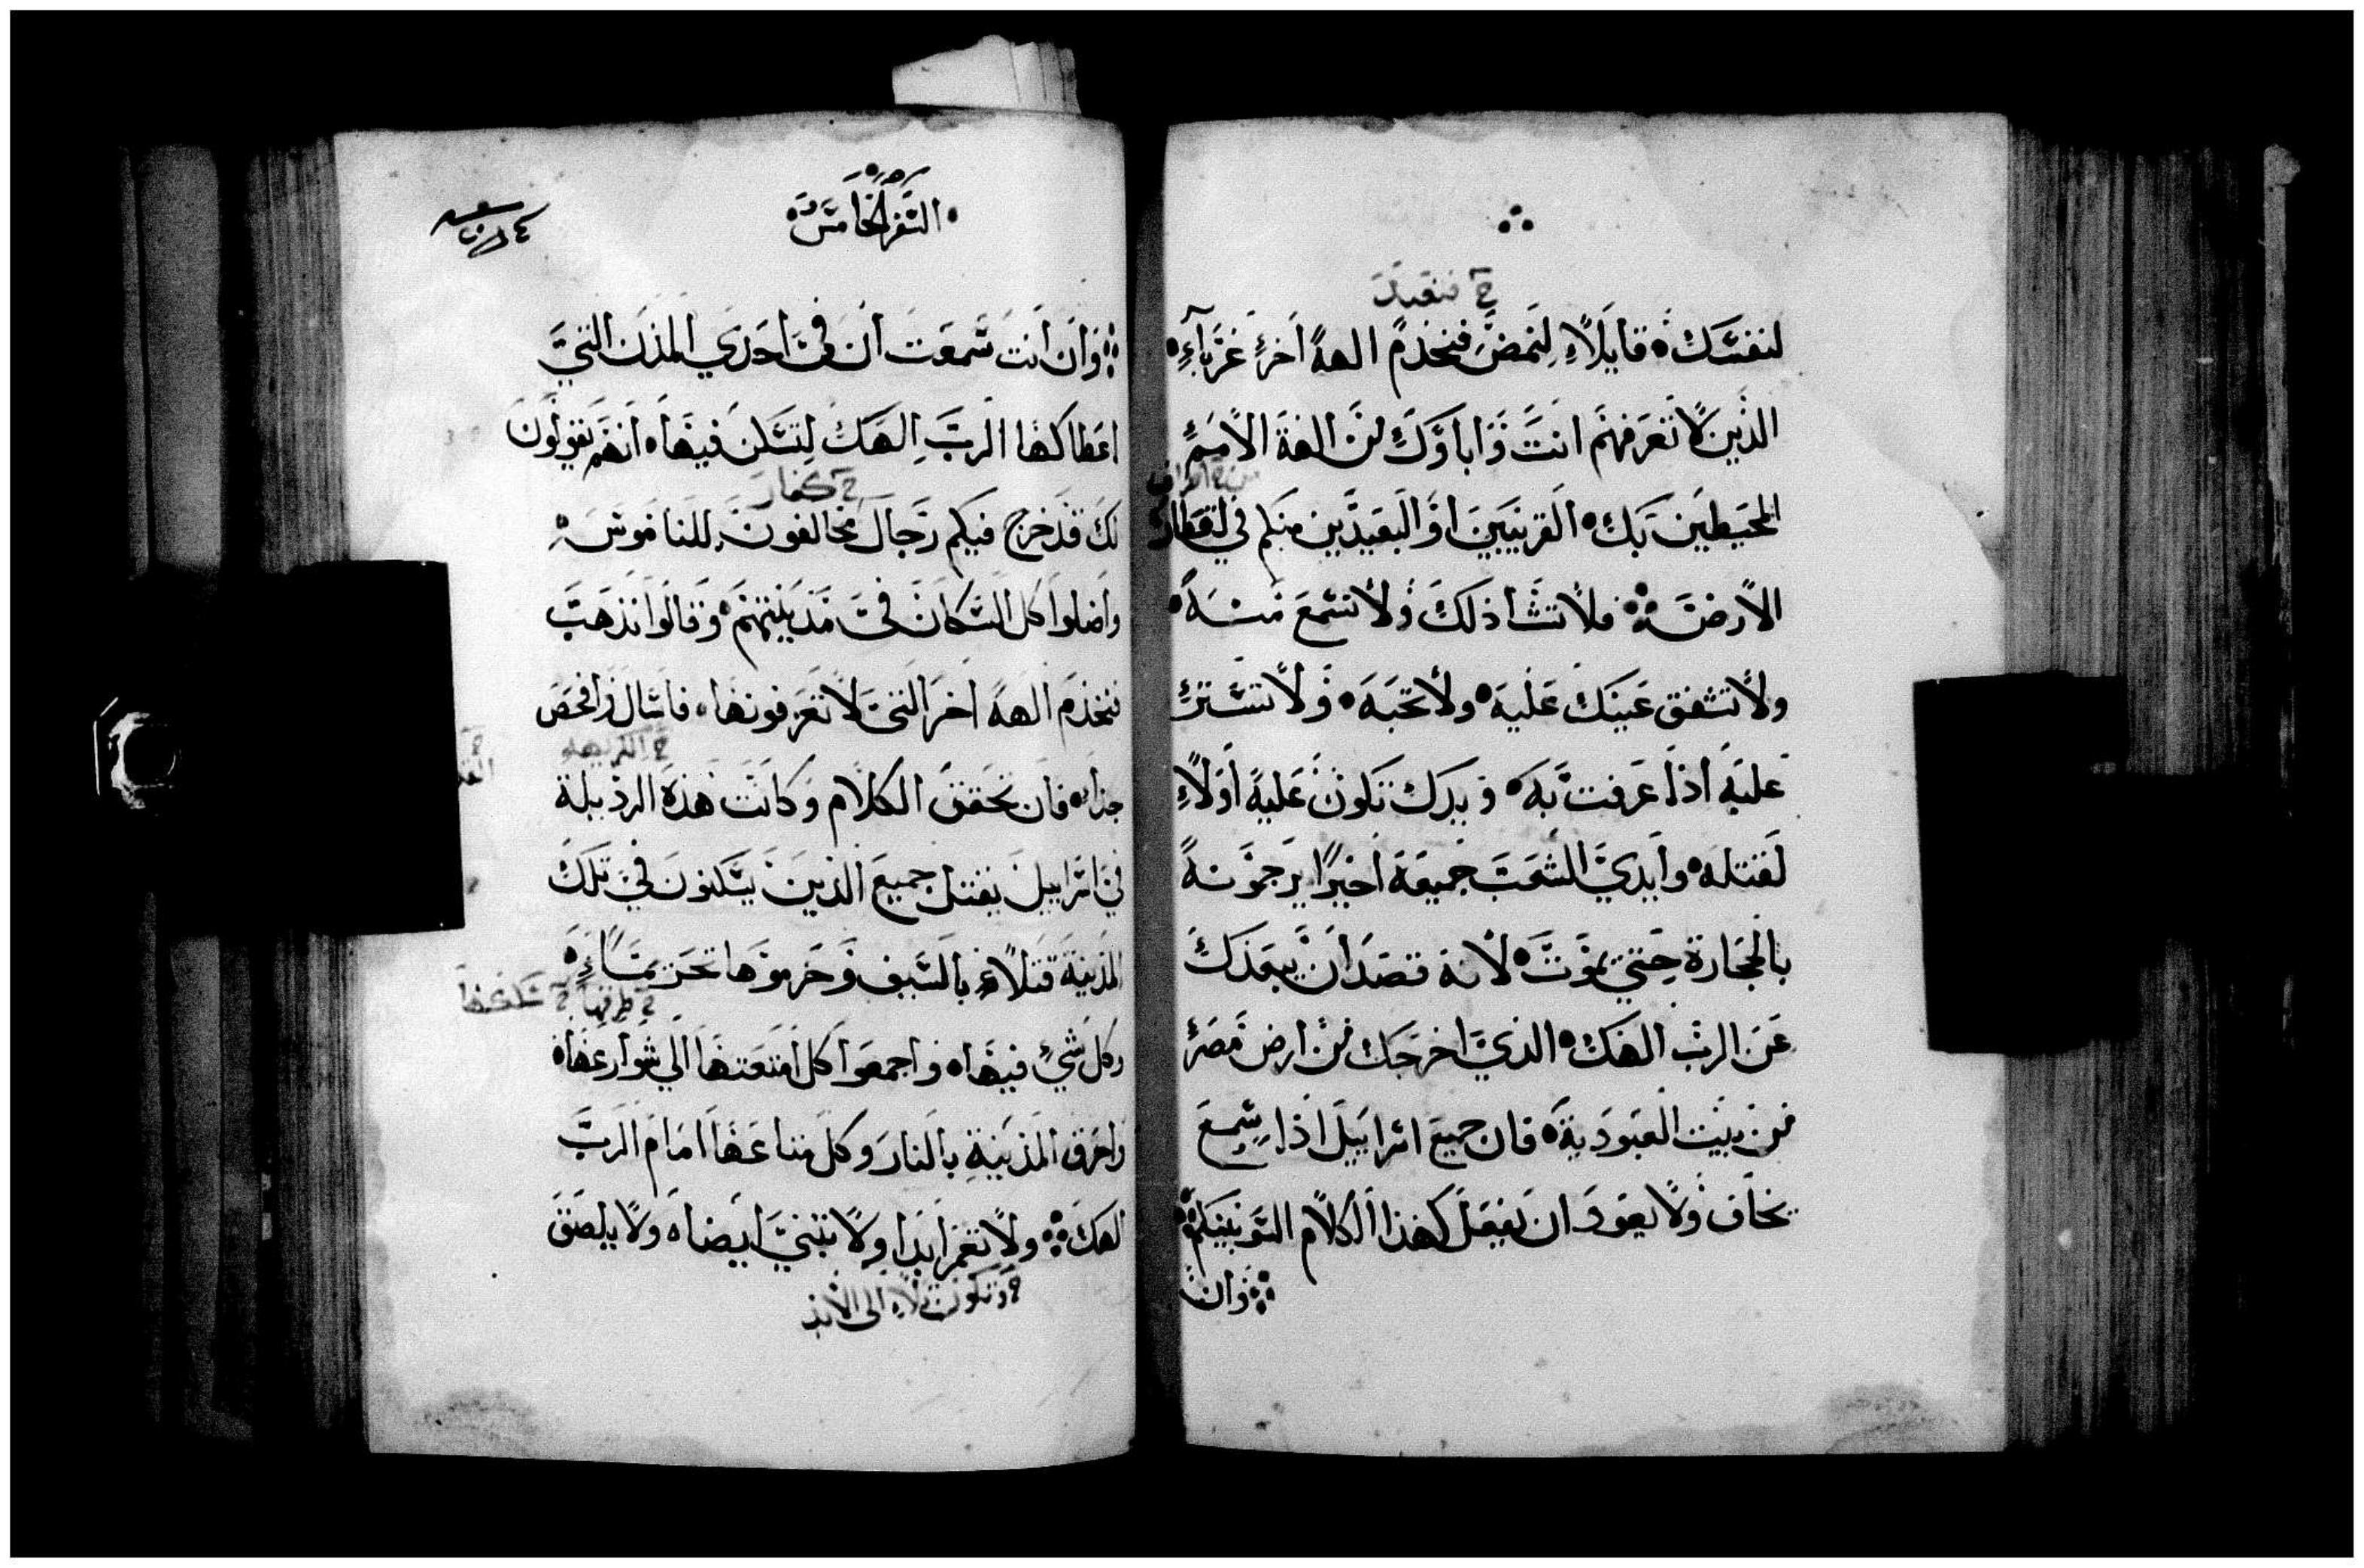 خ فنعبد
لنفسك قايلاً لنمض فنخدم الهة اخر غرباء
الذين لا تعرفهم انت واباوك من الهة الامم
المحيطين بك القريبين او البعيدين منكم في اقطار
الارض فلا تشا ذلك ولا تسمع منه
ولا تشفق عينك عليه ولا تحبه ولا تستر
عليه اذا عرفت به ويدك تكون عليه اولاً
لقتله وايدي الشعب جميعه اخيرا يرجمونه
بالحجارة حتي يموت لانه قصد ان يبعدك
عن الرب الهك الذي اخرجك من ارض مصر
من بيت العبودية فان جميع اسراييل اذا سمع
يخاف ولا يعود ان يفعل كهذا الكلام السو بينكم
وان
السفر الخامس
وان انت سمعت ان في احدي المدن التي
اعطاكها الرب الهك لتسكن فيها انهم يقولون
خ كفار
لك قد خرج فيكم رجال مخالفون للناموس
واضلوا كل السكان في مدينتهم وقالوا نذهب
نخدم الهة اخر التي لا تعرفونها فاسال وافحص
خ الكريهه
جدا فان تحقق الكلام وكانت هذه الرذيلة
في اسراييل يقتل جميع الذين يسكنون في تلك
المدينة قتلاً بالسيف وحرموها تحريماً
خ طرقها خ سككها
وكل شي فيها واجمعوا كل امتعتها الي شوارعها
واحرق المدينة بالنار وكل متاعها امام الرب
الهك ولا تعمر ابدا ولا تبني ايضا ولا يلصق
خ وتكون تلا الى الابد